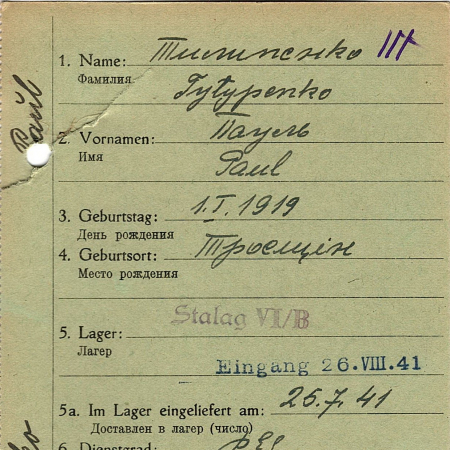 1. Name: Типипенко
Фамилия
Tytypenko
2. Vornamen: Пауль
Имя
Paul
3. Geburtstag: 1.I.1919
День рождения
4. Geburtsort:
Место рождения
Stalag VI/B
5. Lager:
Лагер
Eingang 26.VIII.41
5a. Im Lager eingeliefert am: 26.7.41
Доставлен в лагер (число)
6. Dienstgrad:
Paul